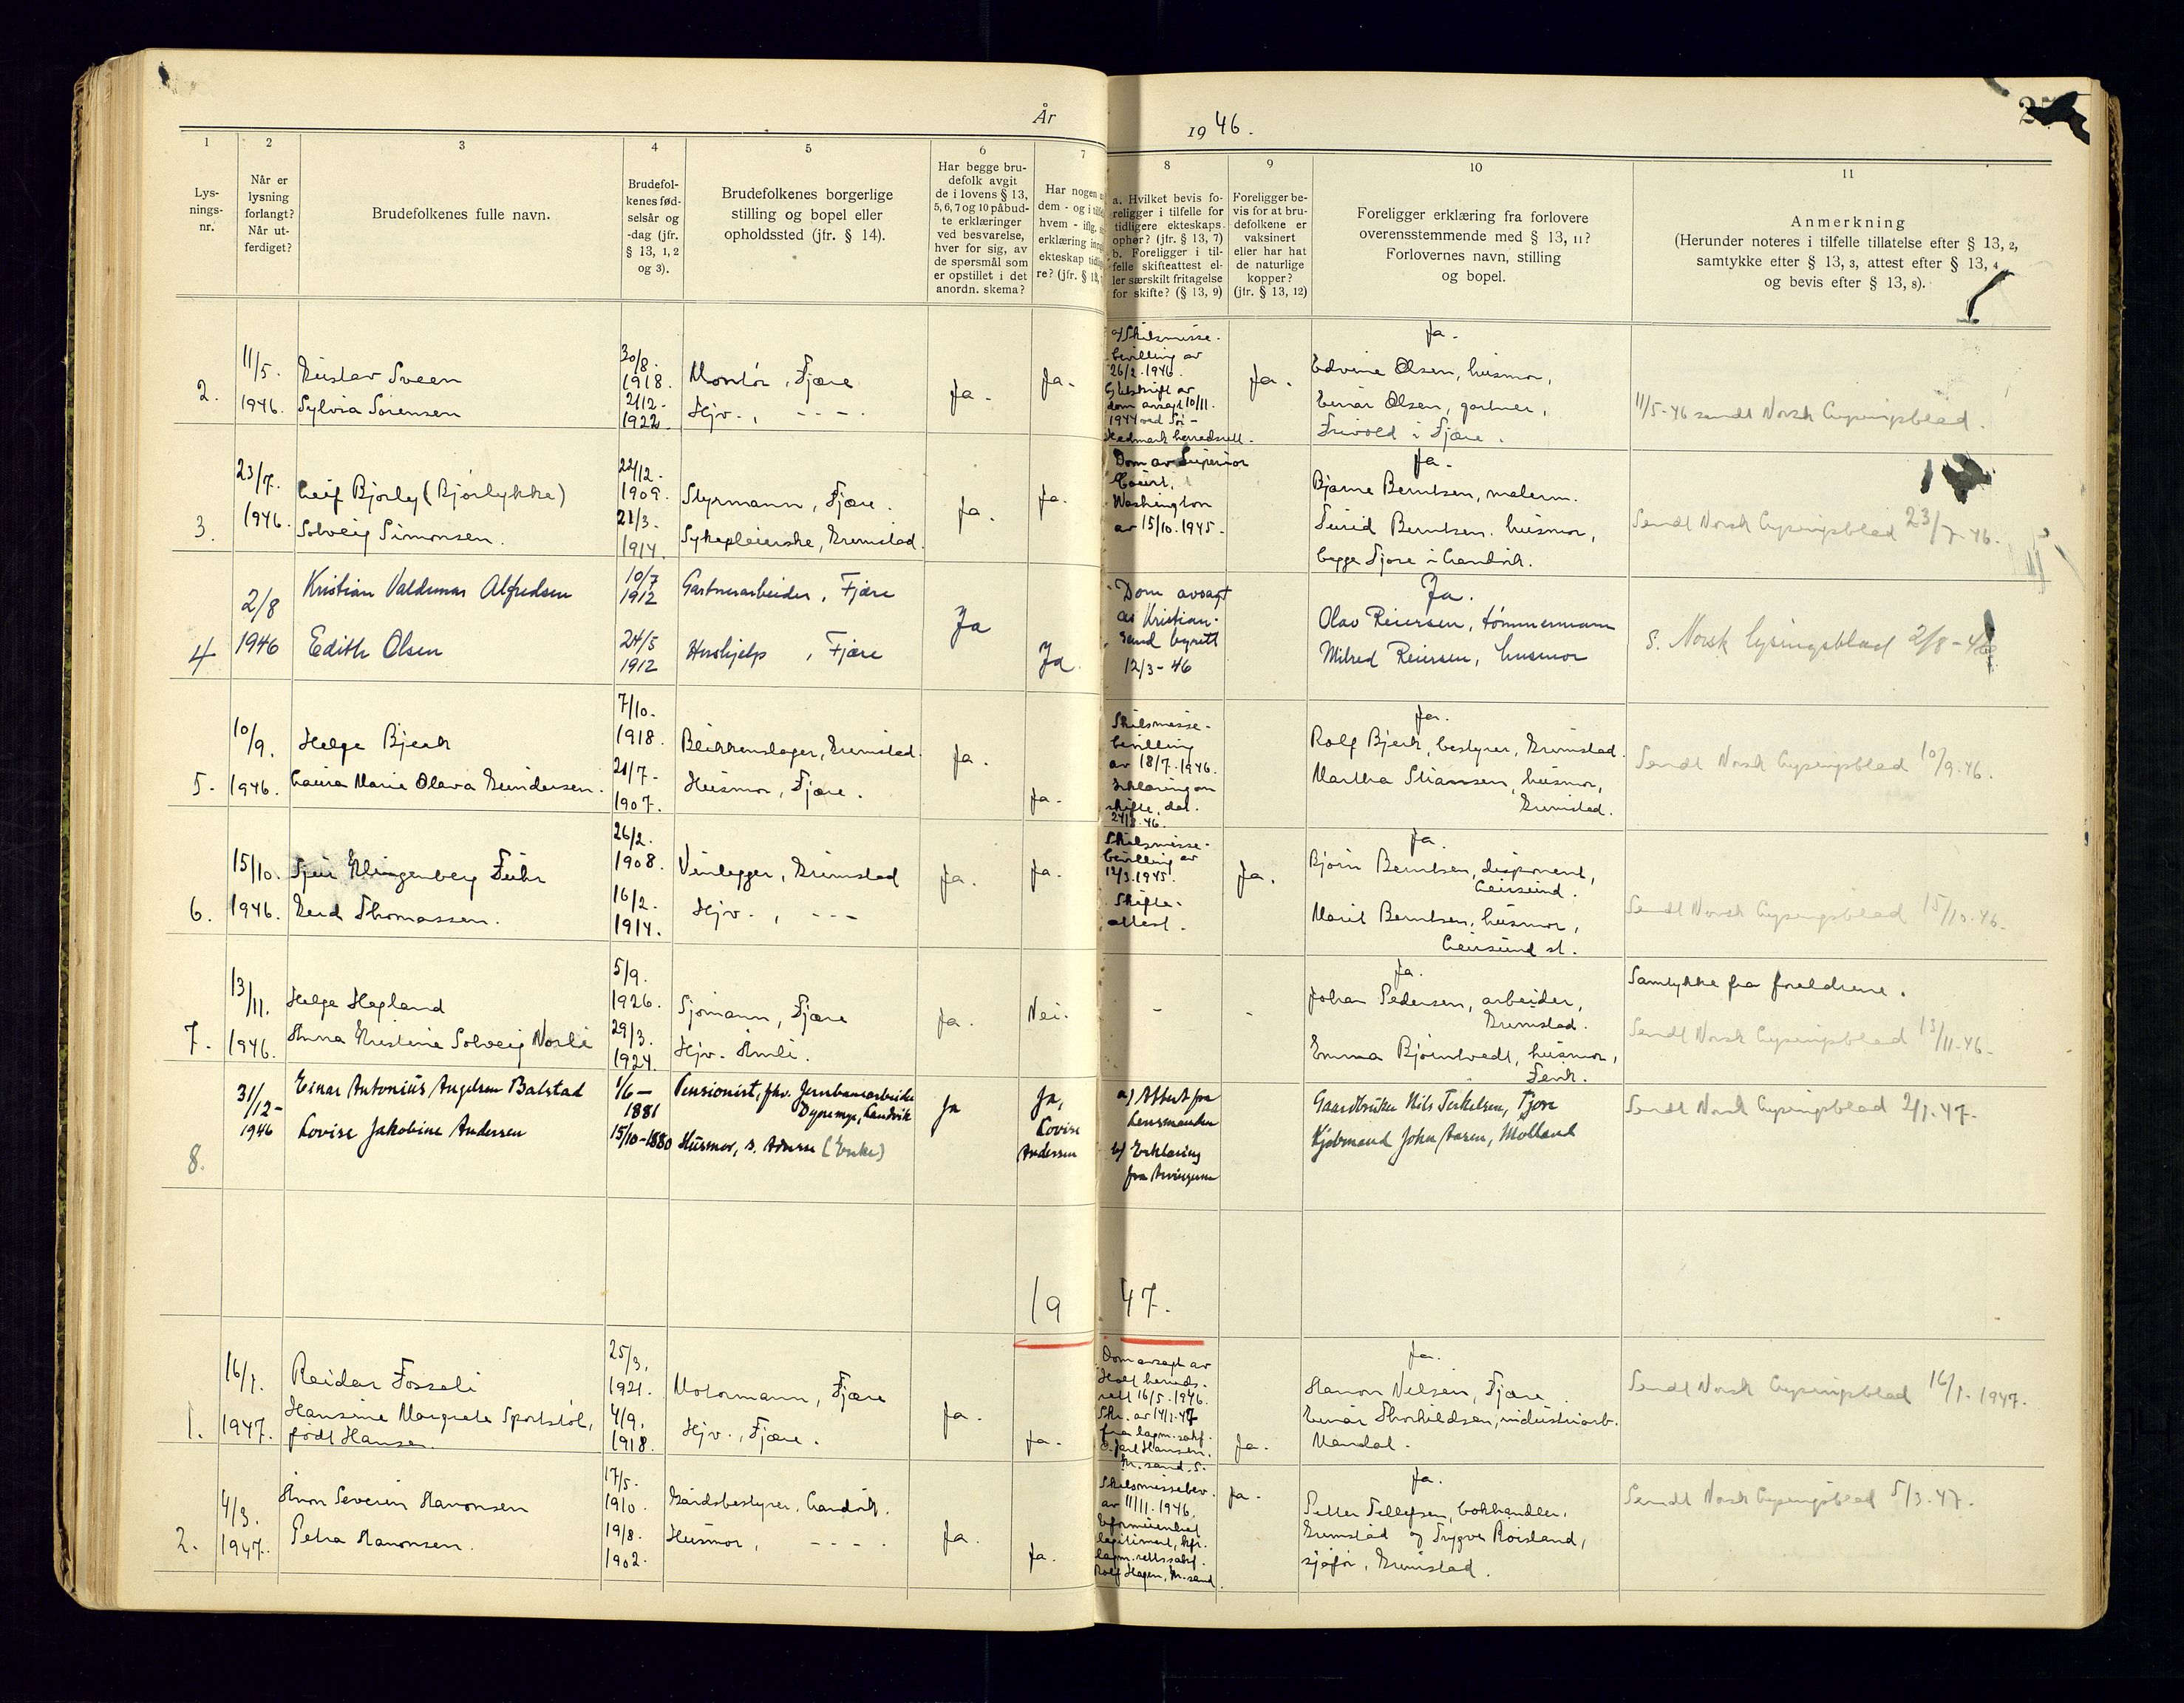 År
1946.
1
Lysnings-
nr.
2
Når er
lysning
forlangt?
Når ut-
ferdiget?
3
Brudefolkenes fulle navn.
4
Brudefol-
kenes fød-
selsår og
-dag (jfr.
§ 13, 1, 2
og 3).
5
Brudefolkenes borgerlige
stilling og bopel eller
opholdssted (jfr. § 14).
6
Har begge bru-
defolk avgit
de i lovens § 13,
5, 6, 7 og 10 påbud-
te erklæringer
ved besvarelse,
hver for sig, av
de spørsmål som
er opstillet i det
anordn. skema?
7
Har nogen
dem - og i
hvem - iflg.
erklæring
ekteskap
re? (jfr. § 13,
8
a. Hvilket bevis fo-
religger i tilfelle for
tidligere ekteskaps
ophør? (jfr. § 13, 7)
b. Foreligger i til-
felle skifteattest el-
ler særskilt fritagelse
for skifte? (§ 13, 9)
9
Foreligger be-
vis for at bru-
defolkene er
vaksinert
eller har hat
de naturlige
kopper?
(jfr. § 13, 12)
10
Foreligger erklæring fra forlovere
overensstemmende med § 13, 11?
Forlovernes navn, stilling
og bopel.
11
Anmerkning
(Herunder noteres i tilfelle tillatelse efter § 13, 2,
samtykke efter § 13, 3, attest efter § 13, 4
og bevis efter § 13, 8).
2.
11/5.
1946.
Gustav Sveen
Sylvia Sørensen
30/8.
1918.
21/2-
1922.
Montør, Fjære
Hjv., - - - .
Ja.
Ja.
a) Skilsmisse-
bevilling av
26/2. 1946.
Utskrift av
dom avsagt 10/11.
1944 ved Sør-
Hedmark herredsrett.
Ja.
Ja.
Edvine Olsen, husmor,
Einar Olsen, gartner,
Frivold i Fjære.
11/5-46 sendt Norsk Lysingsblad.
3.
23/7.
1946.
Leif Bjørly (Bjørlykke)
Solveig Simonsen.
22/12.
1909.
21/3.
1914.
Styrmann, Fjære.
Sykepleierske, Grimstad.
Ja.
Ja.
Dom av Superior
Court,
Washington
av 15/10. 1945.
Ja.
Bjarne Berntsen, malerm.
Turid Berntsen. husmor,
begge Fjære i Landvik.
Sendt Norsk Lysingsblad 23/7-46.
4
2/8
1946
Kristian Valdemar Alfredsen
Edith Olsen
10/7
1912
24/5
1912
Gartnerarbeider, Fjære
Hushjelp, Fjære
Ja
Ja.
Dom avsagt
av Kristian-
sand byrett
12/3-46
Ja.
Olav Reiersen, tømmermann
Milred Reiersen, husmor
S. Norsk lysingsblad 2/8-46
5.
10/9.
1946.
Helge Bjerk
Laura Marie Olava Gundersen.
7/10.
1918.
21/7-
1907.
Blikkenslager, Grimstad.
Husmor, Fjære.
Ja.
Ja.
Skilsmisse-
bevilling
av 18/7. 1946.
Erklæring om
skifte, dat.
24/8. 46.
Ja.
Rolf Bjerk, bestyrer, Grimstad.
Martha Stiansen, husmor,
Grimstad.
Sendt Norsk Lysingsblad 10/9.46.
6.
15/10.
1946.
Klingenberg Führ
Gerd Thomassen.
26/2.
1908.
16/2.
1914.
Vinlegger, Grimstad
Hjv., - - -
Ja.
Ja.
Skilsmisse-
bevilling av
12/3. 1945.
Skifte-
attest.
Ja.
Ja.
Bjørn Berntsen, disponent,
Geirsund.
Marit Berntsen, husmor,
Geirsund st.
Sendt Norsk Lysingsblad 15/10.46.
7.
13/11.
1946.
Helge Hepland
Anna Kristine Solveig Norli
5/9.
1926.
29/3.
1924.
Sjømann, Fjære
Hjv. Åmli.
Ja.
Nei.
-
-
Ja.
Johan Pedersen, arbeider,
Grimstad.
Emma Bjorntvedt, husmor,
Fevik.
Samtykke fra foreldrene.
Sendt Norsk Lysingsblad 13/11-46.
8.
31/12-
1946
Einar Antonius Angelsen Balstad
Lovise Jakobine Andersen
1/6-
1881
15/10-1880
Pensionist, fhv. Jernbanearbeider
Dypemyr, Landvik
Husmor, s. Adresse (Enke)
Ja
Ja,
Lovise
Andersen
a) Attest fra
Lensmanden
b) Erklæring
fra Arvingerne
Gaardbruker Nils Terkelsen, Fjære
Kjøbmand John Aasen, Molland
Sendt Norsk Lysingsblad 2/1-47.
19 47.
1.
16/1.
1947.
Reidar Fosseli
Hansine Margrete Sportstøl,
født Hansen.
25/3.
1921.
4/9.
1918.
Motormann, Fjære
Hjv., Fjære.
Ja.
Ja.
Dom avsagt av
Holt herreds-
rett 16/5. 1946.
Skr. av 14/1-47
fra lagm. sakf.
C. Jarl Hansen.
Kr.sand. S.
Ja.
Ja.
Hanon Nelsen, Fjære
Einar Thorkildsen, industriarb.
Mandal.
Sendt Norsk Lysingsblad 16/1. 1947.
2.
4/3.
1947.
Anon Severin Hanonsen
Petra Hanonsen.
17/5.
1910.
19/8.
1902.
Gårdsbestyrer, Landvik.
Husmor, - - - .
Ja.
Ja.
Skilsmissebev.
av 11/11. 1946.
lagm. rettssakf.
Rolf Hagen, Kr.sand.
Ja.
Ja.
Petter Tellefsen, bokhandler.
Grimstad og Trygve Roisland,
sjåfør, Grimstad.
Sendt Norsk Lysingsblad 5/3.47.